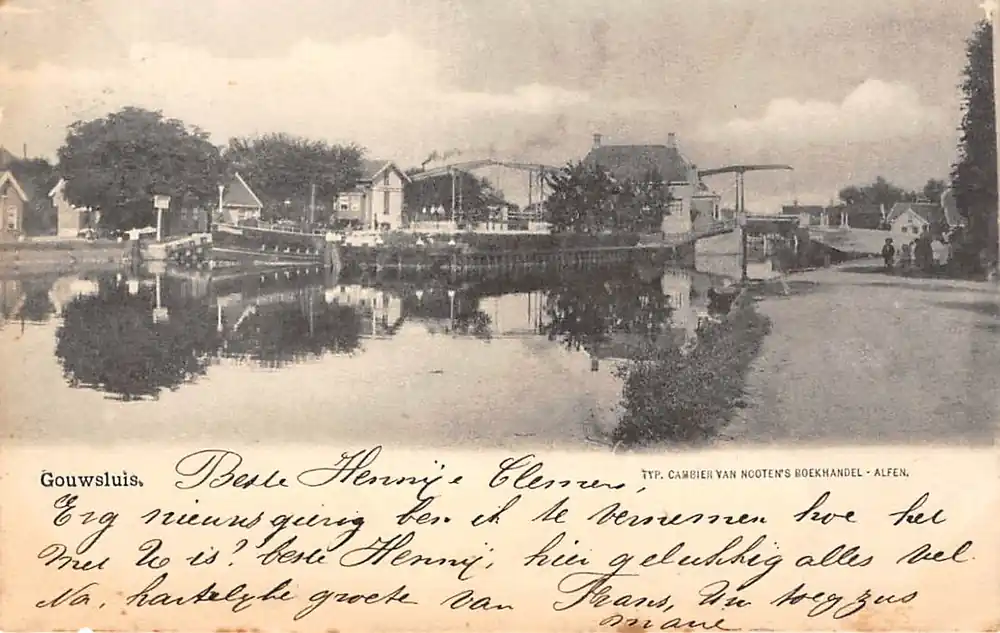 Gouwsluis.
TYP. CAMBIER VAN NOOTEN'S BOEKHANDEL - ALFEN.
Beste Hennij e Clemens,
Erg nieuwsgierig ben ik te vernemen hoe het
met U is? beste Hennij, hier gelukkig alles wel
Na, hartelijke groete van Frans, Uw toeg zus